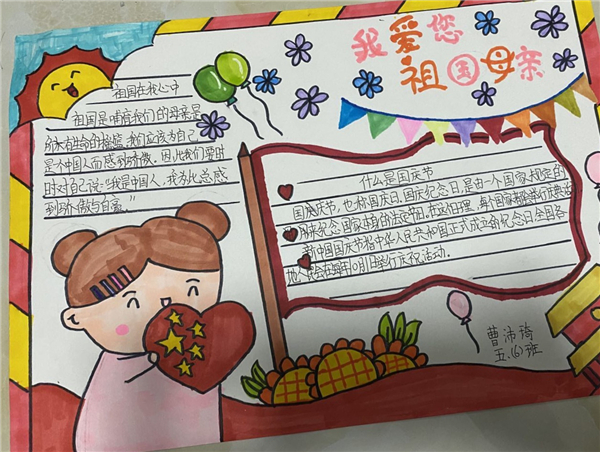 我爱您
祖国母亲
祖国在我心中
祖国是哺育我们的母亲是
们应该为自己
是个中国人而感到骄傲。因此我们要时
时对自己说:“我是中国人,我为此总感
到骄傲与自豪。”
什么是国庆节
国庆节,也称国庆日,国庆纪念日,是由一个国家规定的
庆祝纪念国家
新中国国庆节指中华人民共和国正式成立的纪念日全国各
地会在每年10月1日举行庆祝活动。
曹沛琦
五.(6)班